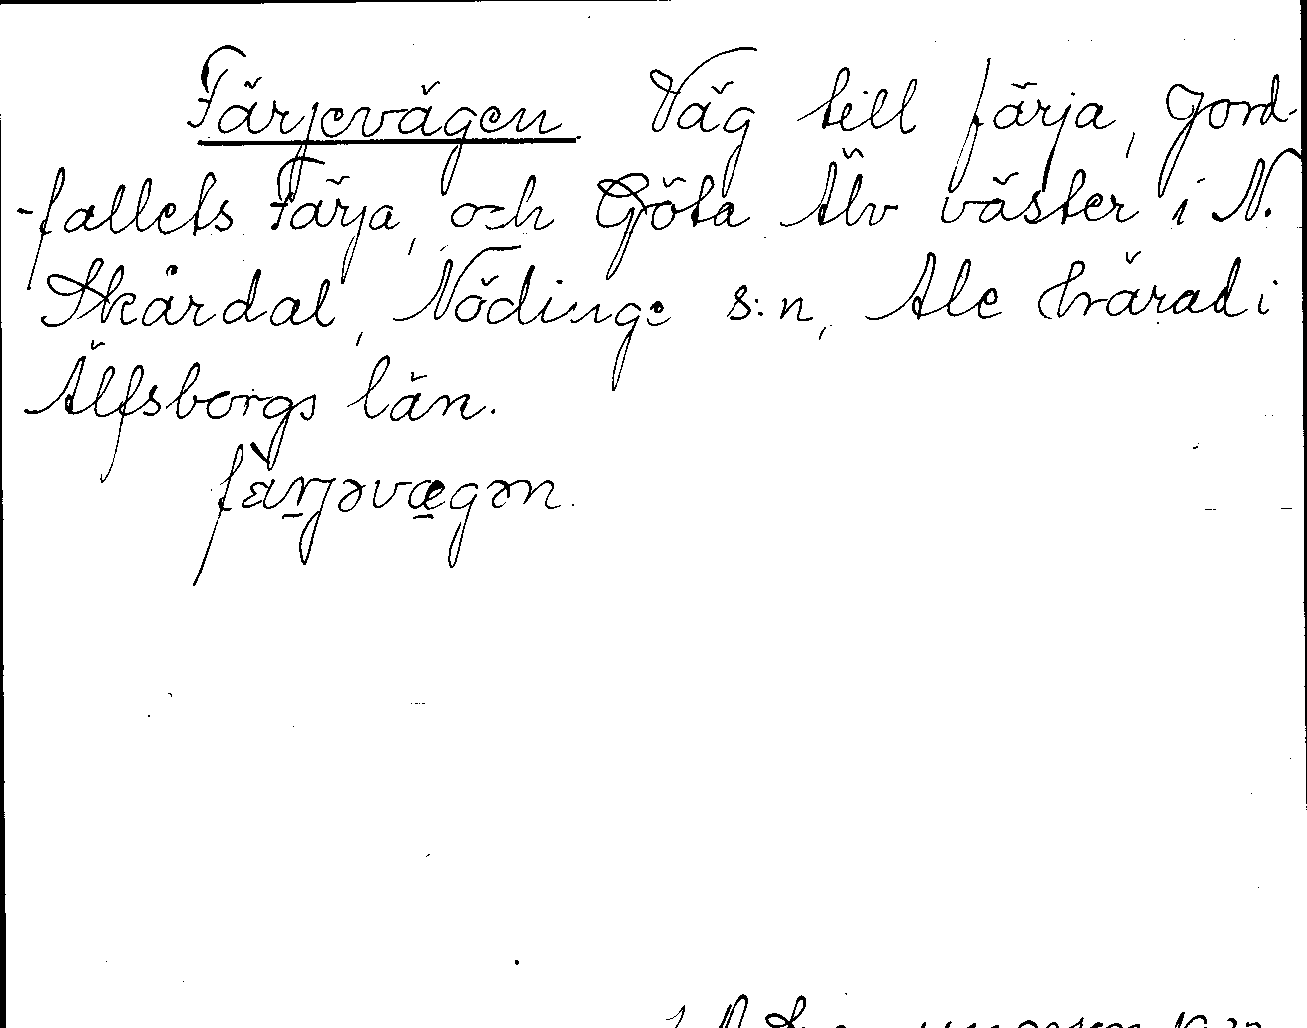 Färjevägen. Väg till färja, Jord-
-fallets Färja, och Göta Älv väster i N.
Skårdal, Nödinge s:n, Ale Härad i
Älfsborgs län.
färjəvægən.